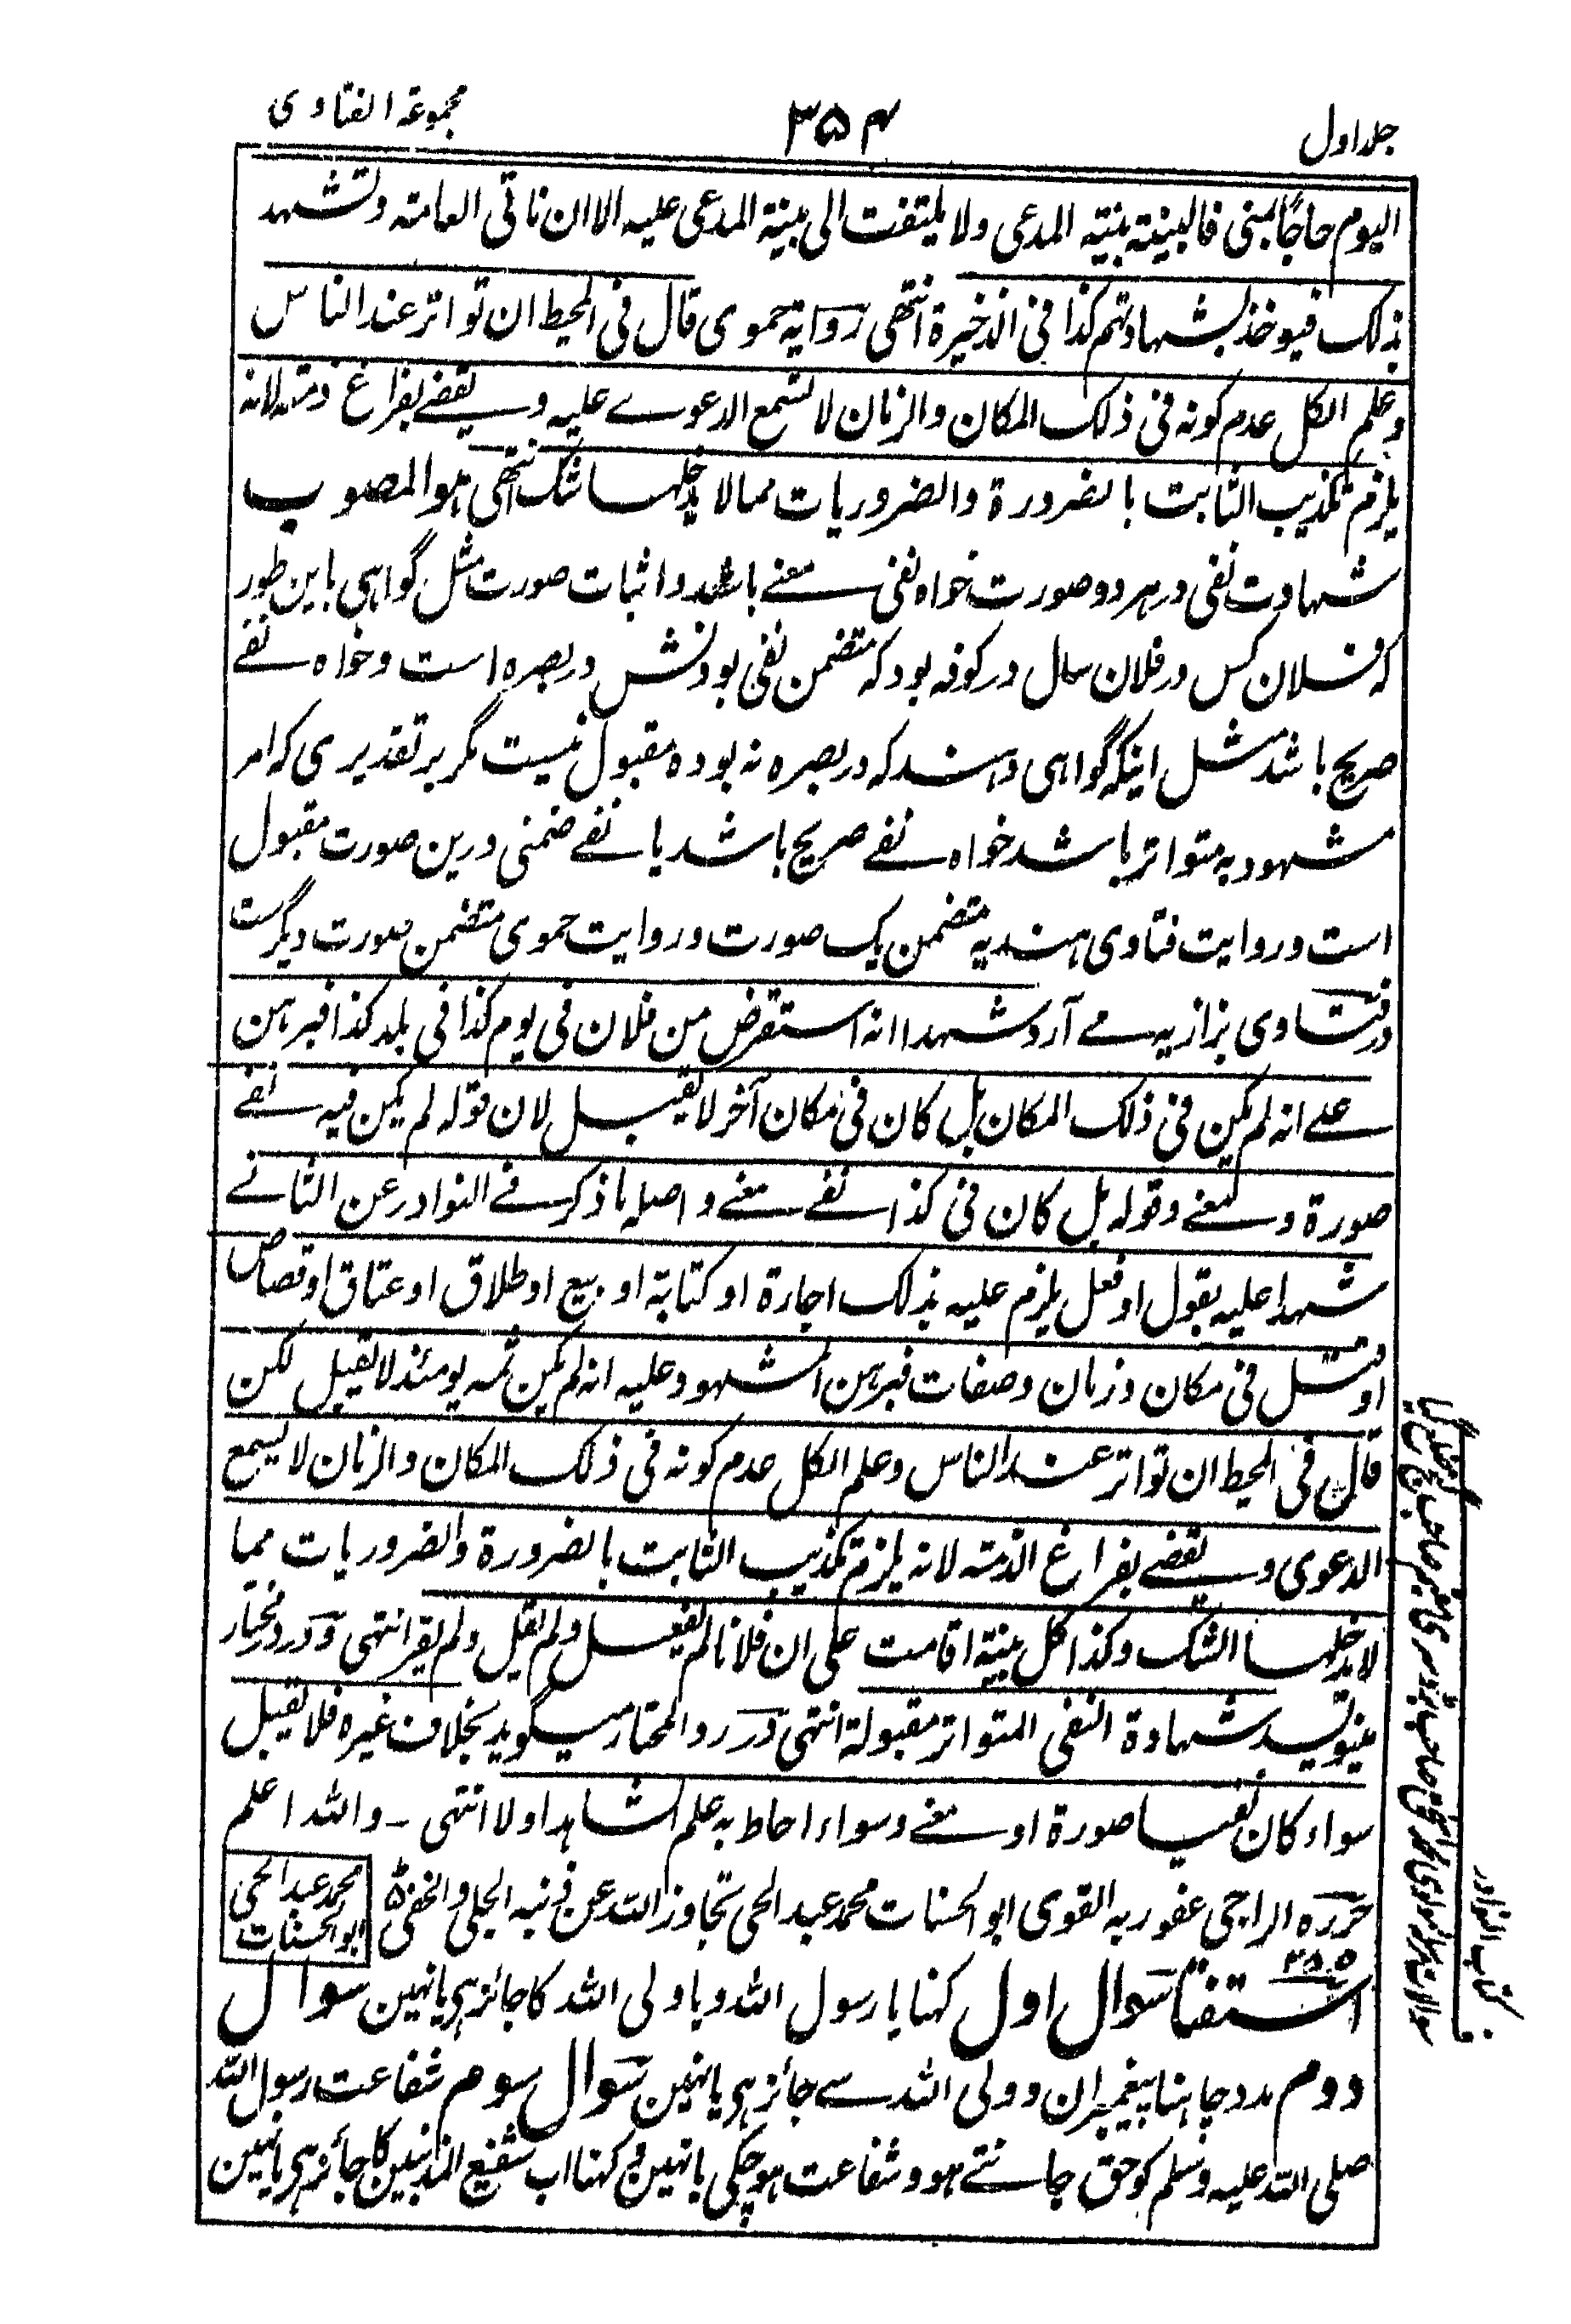 جلد اول
۳۵۴
مجموعۃ الفتاوی
الیوم حاجًا بمنی فالبینۃ بینۃ المدعی ولا یلتفت الی بینۃ المدعی علیہ الا ان تاتی العامۃ وتشہد
بذلک فیوخذ بشہادتہم کذا فی الذخیرۃ انتہی روایۃ حموی قال فی المحیط ان تواتر عند الناس
وعلم الکل عدم کونہ فی ذلک المکان والزمان لا تسمع الدعوے علیہ ویقضے بفراغ ذمتہ لانہ
یلزم تکذیب الثابت بالضرورۃ والضروریات مما لا یدخلہا شک انتہی ہو المصوب
شہادت نفی در ہر دو صورت خواہ نفی معنے باشد و اثبات صورت مثل گواہی باین طور
کہ فلان کس در فلان سال در کوفہ بود کہ متضمن نفی بودنش در بصرہ است و خواہ نفے
صریح باشد مثل اینکہ گواہی دہند کہ در بصرہ نہ بودہ مقبول نیست مگر بر تقدیری کہ امر
مشہود بہ متواتر باشد خواہ نفے صریح باشد یا نفے ضمنی درین صورت مقبول
است و روایت فتاوی ہندیہ متضمن یک صورت و روایت حموی متضمن صورت دیگر ست
در فتاوی بزازیہ مے آرد شہدا انہ استقرض من فلان فی یوم کذا فی بلد کذا فبرہن
علے انہ لم یکن فی ذلک المکان بل کان فی مکان آخر لا یقبل لان قولہ لم یکن فیہ نفے
صورۃ ومعنے وقولہ بل کان فی کذا نفے معنے واصلہ ما ذکر فے النوادر عن الثانے
شہدا علیہ بقول او فعل یلزم علیہ بذلک اجارۃ او کتابۃ او بیع او طلاق او عتاق او قصاص
او قتل فی مکان وزمان وصفات فبرہن المشہود علیہ انہ لم یکن ثمہ یومئذ لا یقبل لکن
قال فی المحیط ان تواتر عند الناس وعلم الکل عدم کونہ فی ذلک المکان والزمان لا یسمع
الدعوی ویقضے بفراغ الذمتہ لانہ یلزم تکذیب الثابت بالضرورۃ والضروریات مما
لا یدخلہا الشک وکذا کل بینۃ اقامت علی ان فلانا لم یفعل ولم یقل ولم یقر انتہی و در در مختار
مینویسد شہادۃ النفی المتواتر مقبولۃ انتہی در رد المحتار میگوید بخلاف غیرہ فلا یقبل
سواء کان نفیا صورۃ او معنے وسواء احاط بہ علم الشاہد او لا انتہی ۔ واللہ اعلم
حررہ الراجی عفو ربہ القوی ابو الحسنات محمد عبد الحی تجاوز اللہ عن ذنبہ الجلی والخفی
محمد عبد الحی
ابو الحسنات
استفتا سوال اول کہنا یا رسول اللہ و یا ولی اللہ کا جائز ہی یا نہین سوال
دوم مدد چاہنا پیغمبران و ولی اللہ سے جائز ہی یا نہین سوال سوم شفاعت رسول اللہ
صلی اللہ علیہ وسلم کو حق جانتے ہو و شفاعت ہو چکی یا نہین و کہنا اب شفیع المذنبین کا جائز ہی یا نہین